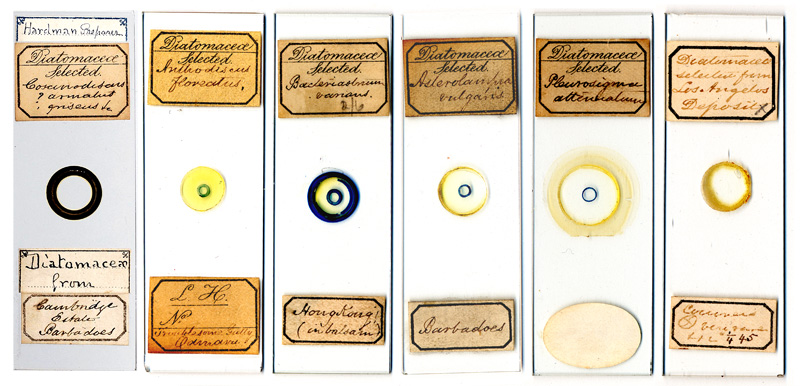 Hardman
Diatomaceæ
Selected.
Coscinodiscus
? armatus
? griseus &c
Diatomaceæ
from
Cambridge
Estate
Barbadoes
Diatomaceæ
Selected.
floreatus,
L. H.
No
Diatomaceæ
Selected.
Bacteriastrum
varians.
Hong Kong!
(in balsam)
Diatomaceæ
Selected.
Asterolampra
vulgaris
Barbadoes
Diatomaceæ
Selected.
Pleurosigma
attenuatum
Diatomaceæ
selected from
Los Angelos
Deposit